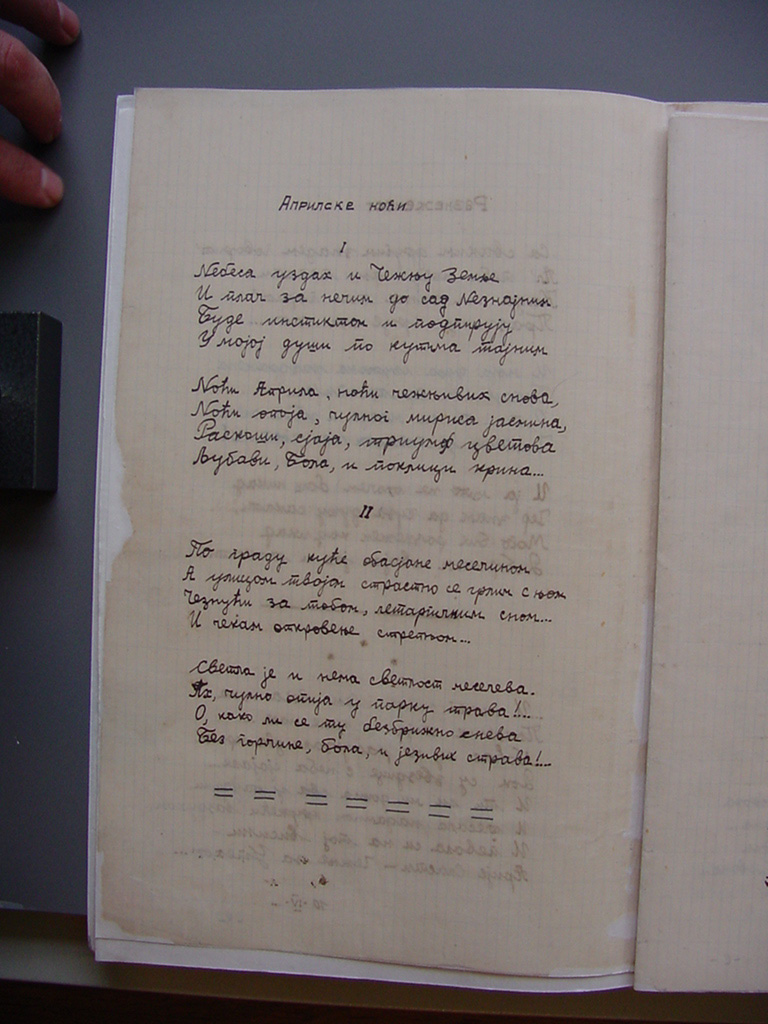 Априлске ноћи
I
Небеса уздах и Чежњу Земље
И плач за нечим до сад Незнајним
Буде инстиктом и подпирују
У мојој души по кутима тајним
Ноћи Априла, ноћи чежњивих снова,
Ноћи опоја, чулног мириса јасмина,
Раскоши, сјаја, триумф цветова
Љубави, Бола, и поклици крина...
II
По граду куће обасјане месечином
А улицом твојом страстно се грлим с њом
Чезнући за тобом, летаргичким сном...
И чекам откровење сретњом...
Светла је и нема светлост месечева.
Ах, чулно опија у парку трава!...
О, како ли се ту безбрижно снева
Без горчине, бола, и језивих страва!...